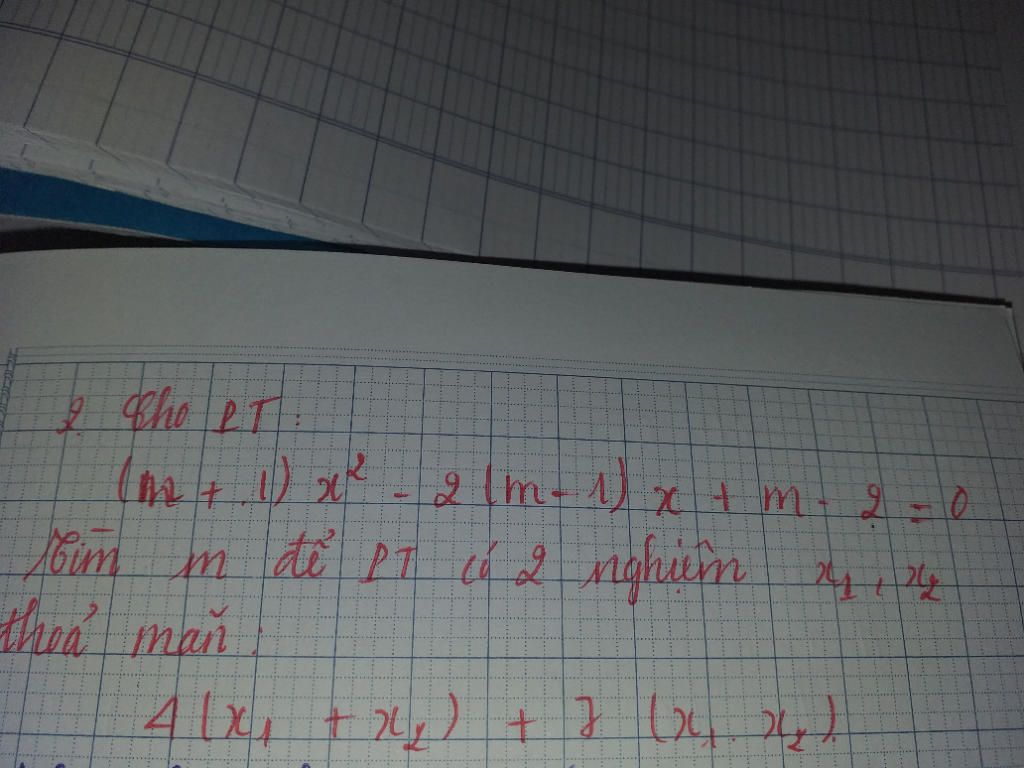 2. Cho PT:
(m + 1) x² - 2 (m - 1) x + m - 2 = 0
Tìm m để PT có 2 nghiệm x₁, x₂
thoả mãn:
4 (x₁ + x₂) + 7 (x₁ . x₂)